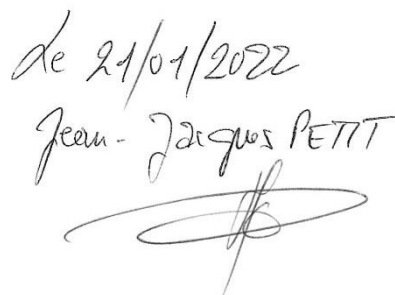 Le 21/01/2022
Jean-Jacques PETIT